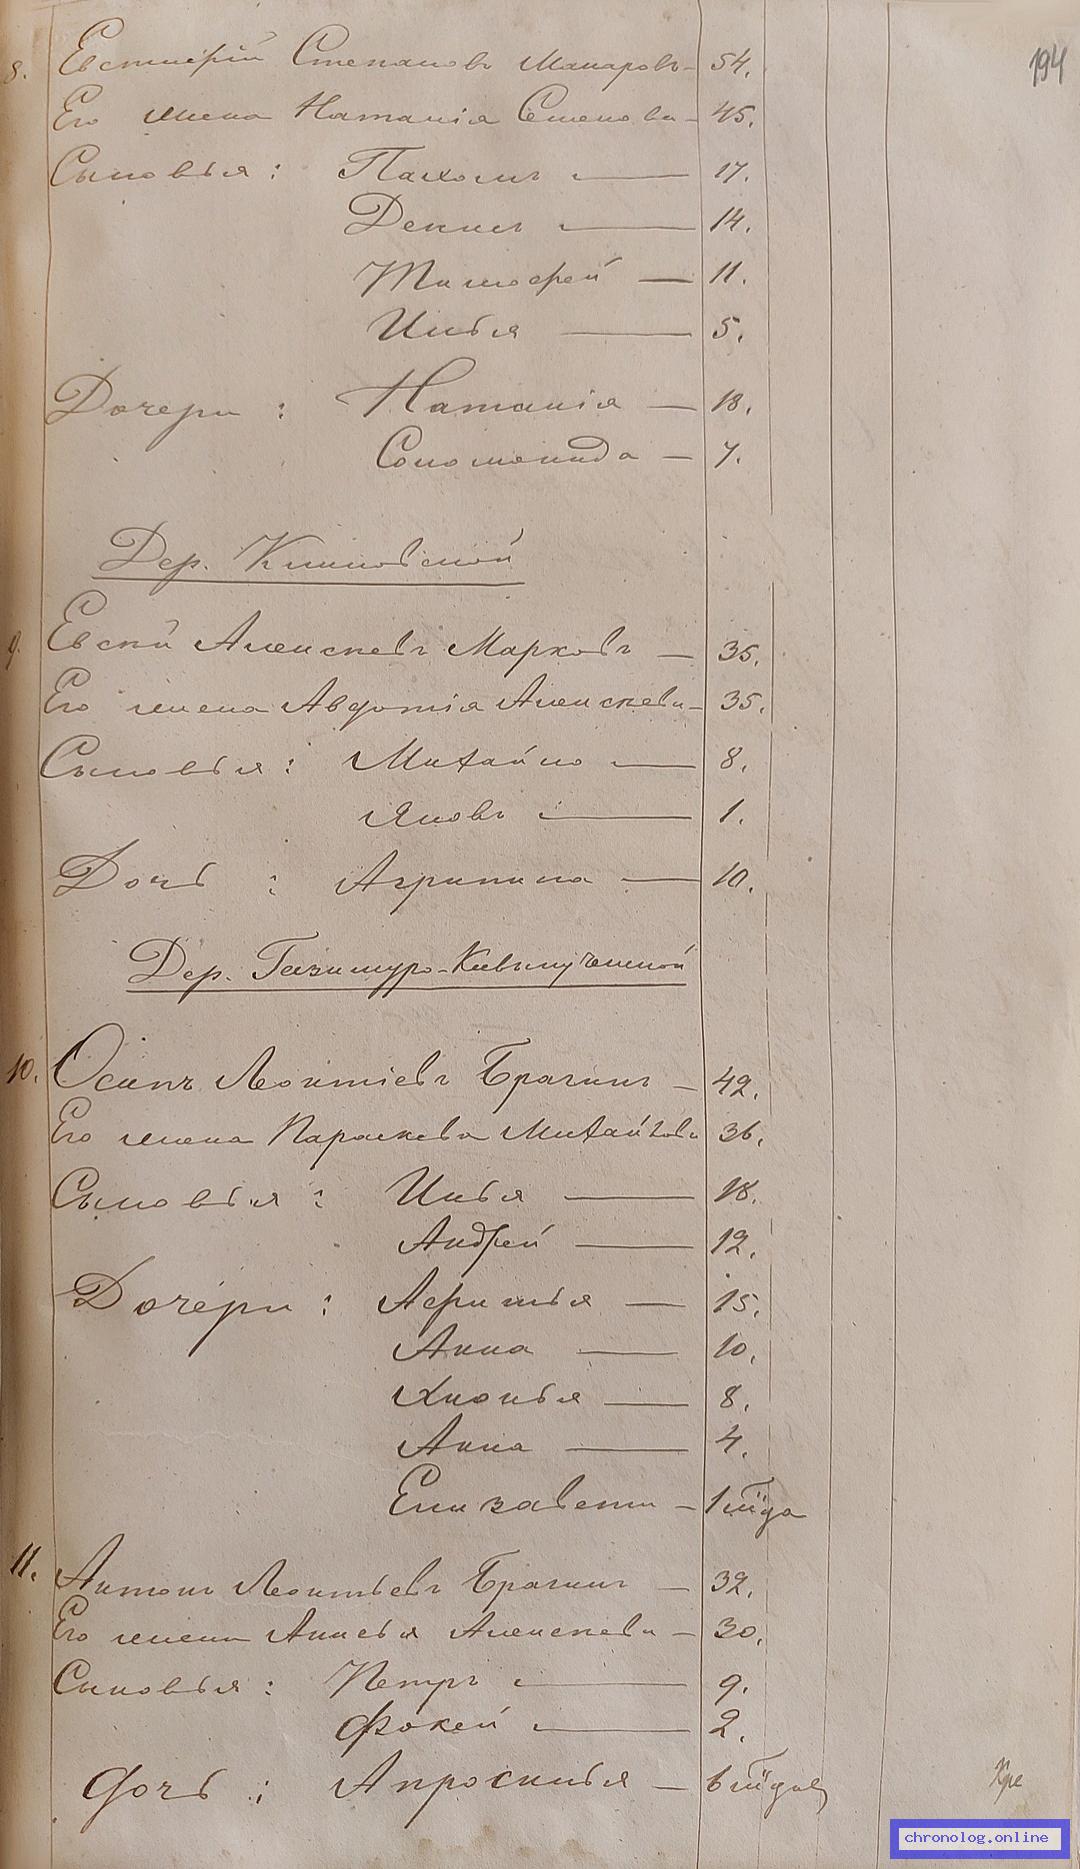 194
8. Евстифiй Степановъ Макаровъ - 54.
Его жена Наталiя Семенова - 45.
Сыновья: Пахомъ — 17.
Денисъ — 14.
Тимофей — 11.
Илья — 5.
Дочери: Наталiя — 18.
Соломонида — 7.
Дер.
9. Евсей Алексеевъ Марковъ — 35.
Его жена Авдотiя Алексеева - 35.
Сыновья: Михайло — 8.
Яковъ — 1.
Дочь: Агрипина — 10.
Дер. Газимуро-
10. Осипъ Леонтiевъ Брагинъ — 42.
Его жена Параскева Михайлова 36.
Сыновья: Илья — 18.
Андрей — 12.
Дочери: Афимья — 15.
Анна — 10.
Хионья — 8.
Анна — 4.
Елизавета — 1 года
11. Антонъ Леонтьевъ Брагинъ — 32.
Его жена Анисья Алексеева — 30.
Сыновья: Петръ — 9.
Фокей — 2.
Дочь: Апросинья — 6
chronolog.online